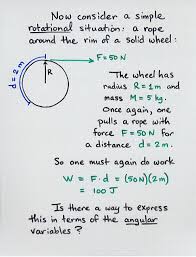 Now consider a simple
rotational situation: a rope
around the rim of a solid wheel:
d = 2m
F = 50N
R
The wheel has
radius R = 1m and
mass M = 5 kg.
Once again, one
pulls a rope with
force F = 50N for
a distance d = 2m.
So one must again do work
W = F · d = (50N)(2m)
= 100 J
Is there a way to express
this in terms of the angular
variables?